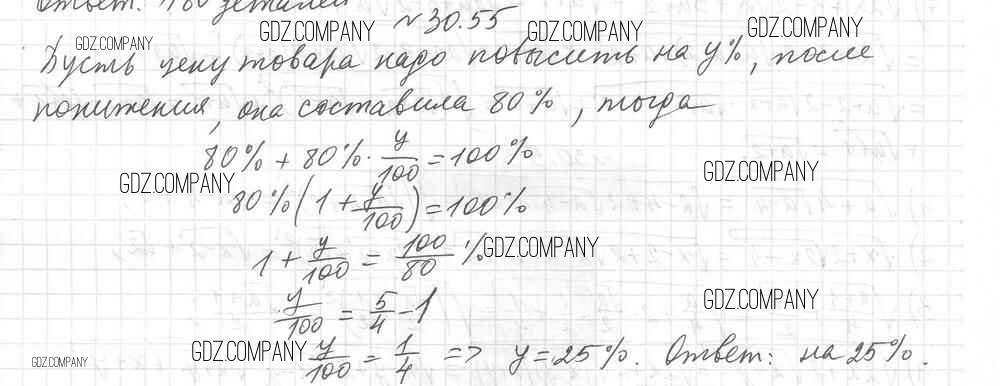 Ответ: 180 деталей
№30.55
GDZ.COMPANY GDZ.COMPANY GDZ.COMPANY GDZ.COMPANY
Пусть цену товара надо повысить на y%, после
понижения, она составила 80%, тогда
80% + 80% · y/100 = 100%
GDZ.COMPANY GDZ.COMPANY
80% (1 + y/100) = 100%
1 + y/100 = 100/80 % GDZ.COMPANY
y/100 = 5/4 - 1 GDZ.COMPANY
GDZ.COMPANY GDZ.COMPANY y/100 = 1/4 => y = 25%. Ответ: на 25%.